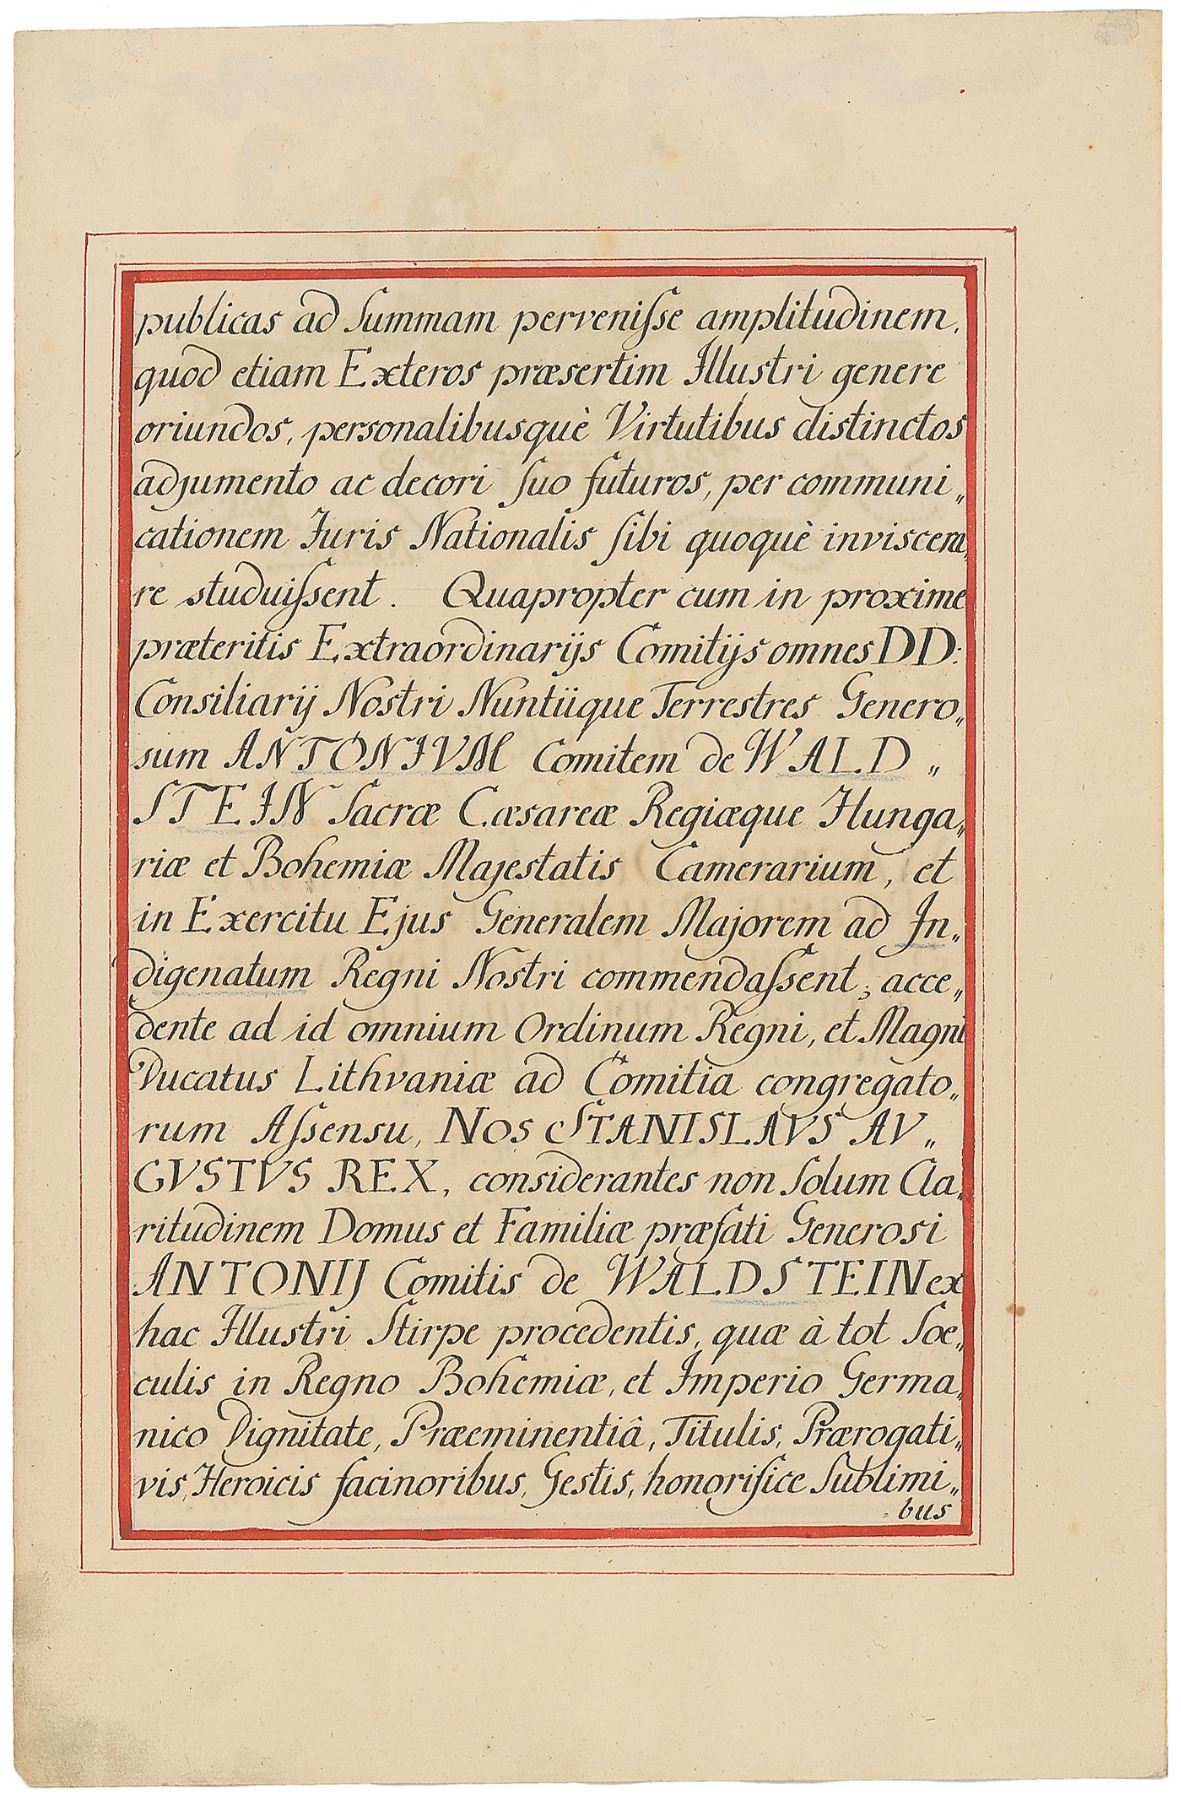 publicas ad Summam pervenisse amplitudinem,
quod etiam Exteros præsertim Illustri genere
oriundos, personalibusquè Virtutibus distinctos
adjumento ac decori suo futuros, per communi„
cationem Iuris Nationalis sibi quoquè inviscera„
re studuissent. Quapropter cum in proxime
præteritis Extraordinarijs Comitijs omnes DD:
Consiliarij Nostri Nuntiique Terrestres Genero„
sum ANTONIVM Comitem de WALD„
STEIN Sacræ Cæsareæ Regiæque Hunga„
riæ et Bohemiæ Majestatis Camerarium, et
in Exercitu Ejus Generalem Majorem ad In„
digenatum Regni Nostri commendassent; acce„
dente ad id omnium Ordinum Regni, et Magni
Ducatus Lithvaniæ ad Comitia congregato„
rum Assensu, NOS STANISLAVS AV„
GVSTVS REX, considerantes non Solum Cla„
ritudinem Domus et Familiæ præfati Generosi
ANTONIJ Comitis de WALDSTEIN ex
hac Illustri Stirpe procedentis, quæ à tot Sœ„
culis in Regno Bohemiæ, et Imperio Germa„
nico Dignitate, Præeminentiâ, Titulis, Prærogati„
vis, Heroicis facinoribus, Gestis, honorifice Sublimi„
bus